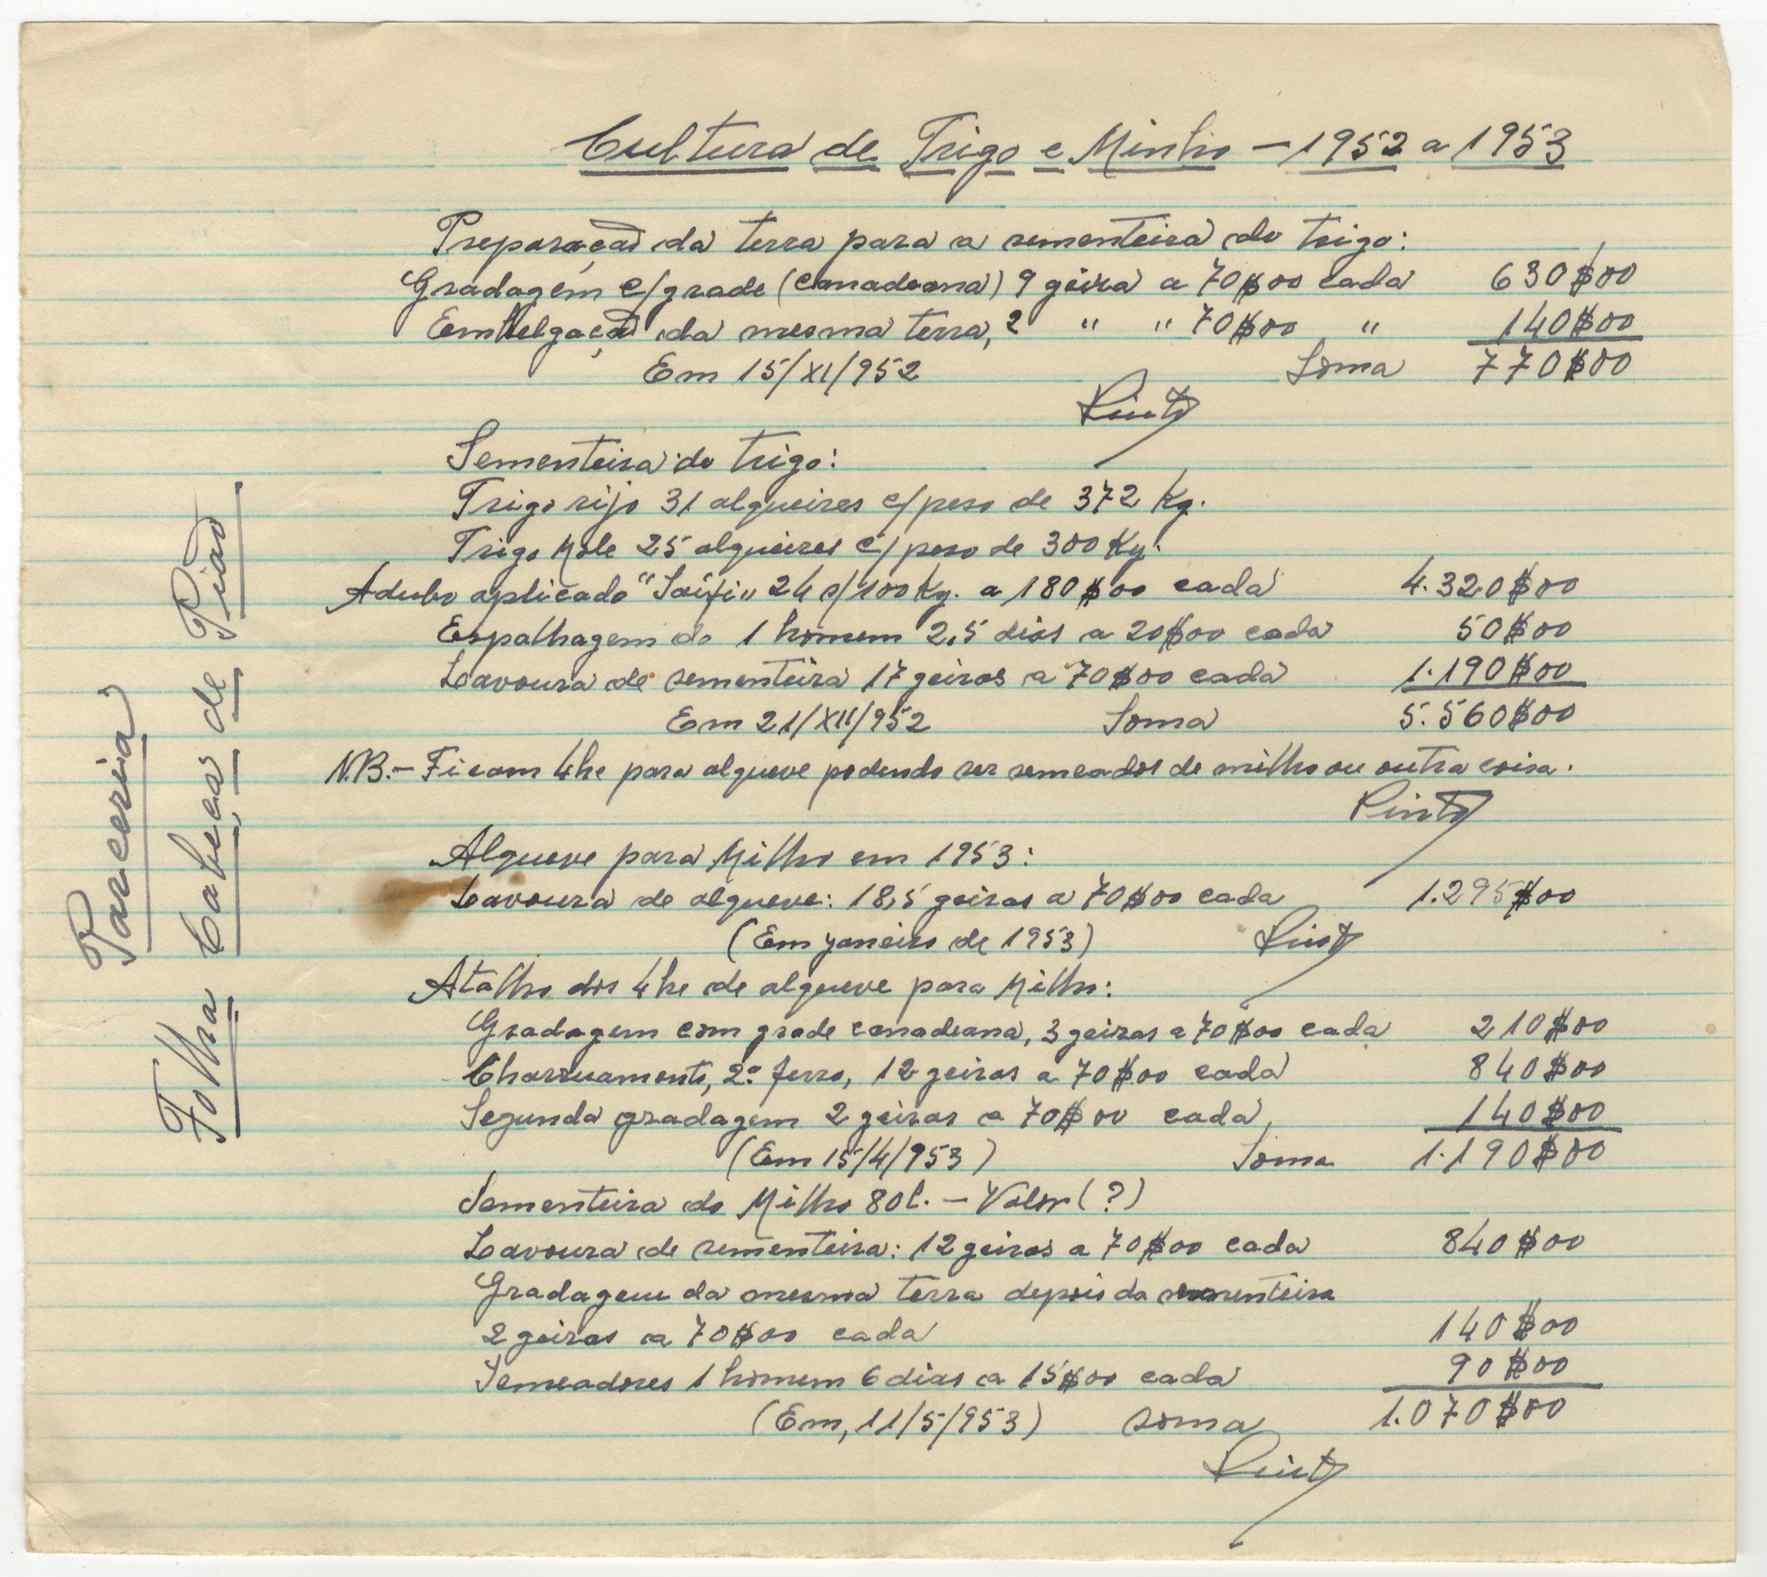 Cultura de Trigo e Minho - 1952 a 1953
Preparação da terra para a sementeira do trigo:
Gradagem c/grade (canadeana) 9 geira a 70$00 cada 630$00
Embelgação da mesma terra, 2 " " 70$00 " 140$00
Em 15/XI/952 Soma 770$00
Pinto
Sementeira do trigo:
Trigo rijo 31 alqueires c/peso de 372 Kg.
Trigo Mole 25 alqueires c/peso de 300 Kg.
Adubo aplicado "Saífi" 24 s/100 Kg. a 180$00 cada 4.320$00
Espalhagem do 1 homem 2,5 dias a 20$00 cada 50$00
Lavoura de sementeira 17 geiras a 70$00 cada 1.190$00
Em 21/XII/952 Soma 5.560$00
N.B.- Ficam 4he para alqueve podendo ser semeados de milho ou outra coisa.
Pinto
Alqueve para Milho em 1953:
Lavoura de alqueve: 18,5 geiras a 70$00 cada 1.295$00
(Em janeiro de 1953) Pinto
Atalho dos 4he de alqueve para Milho:
Gradagem com grade canadeana, 3 geiras a 70$00 cada 210$00
Charruamento, 2º ferro, 12 geiras a 70$00 cada 840$00
Segunda gradagem 2 geiras a 70$00 cada 140$00
(Em 15/4/953) Soma 1.190$00
Sementeira do Milho 80l. - Valor (?)
Lavoura de sementeira: 12 geiras a 70$00 cada 840$00
Gradagem da mesma terra depois da sementeira
2 geiras a 70$00 cada 140$00
Semeadores 1 homem 6 dias a 15$00 cada 90$00
(Em, 11/5/953) soma 1.070$00
Pinto
Parceria
Folha Cabeças de Pião